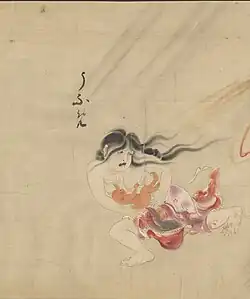 うぶめ